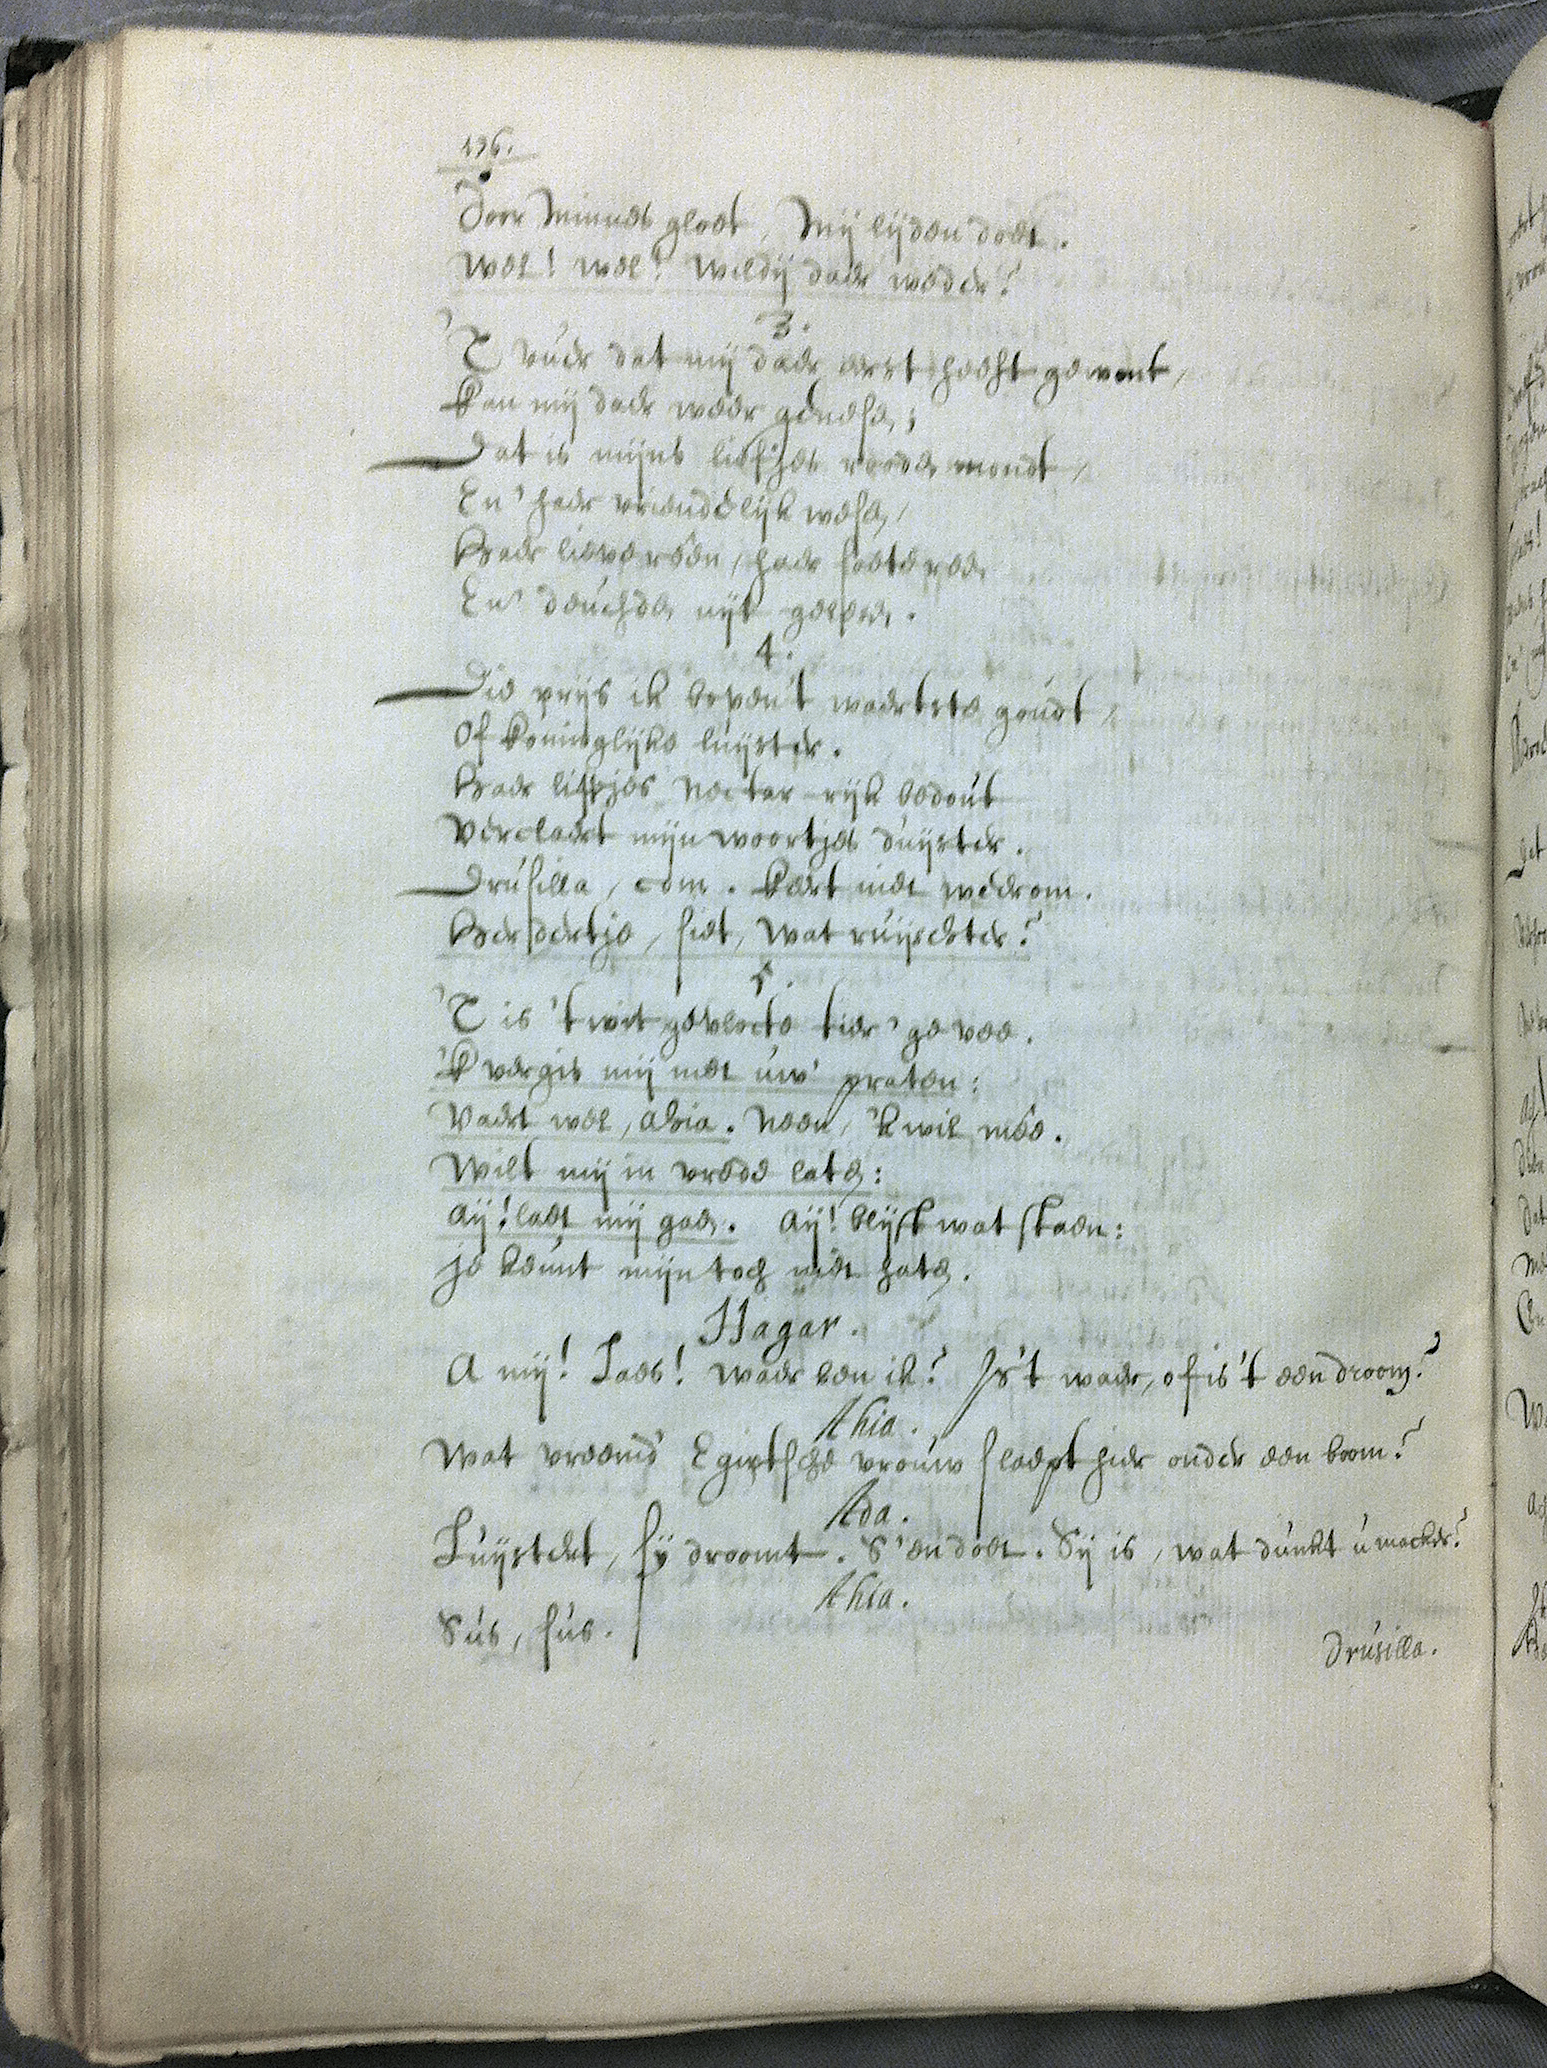 136.
Door Minnes gloet, Mij lijden doet.
Wel! wel! Wildij daer weder?
3.
'T vuer dat mij daer eerst heeft gewont,
Kan mij daer weer genese;
Dat is mijns liefjes roode mondt,
En' haer vriendelijk wese,
Haer lieve reden, haer soete rede
En' deuchde nijt gelese.
4.
Die prijs ik boven't waertste goudt,
Of koninglijke luijster.
Haer lipjes Nectar-rijk bedout
Verclaert mijn woortjes duijster.
Drusilla, com. Keert niet wederom.
Herdertje, siet, wat ruijschter?
5.
'T is 't wit gevlockte tier'ge vee.
'K vergis mij met uw' praten:
Vaert wel, Ahia. Neen, 'k wil mee.
Wilt mij in vrede late:
Aij! laet mij gae. Aij! blijft wat staen:
Je keunt mijn toch niet hate.
Hagar.
A mij! Laes! waer ben ik? Is't waer, of is't een droom?
Ahia.
Wat vreemd' Egiptsche vrouw slaept hier onder een boom?
Ada.
Luijstert, sij droomt. S'en doet. Sij is, wat dunkt u wacker?
Ahia.
Sus, sus.
Drusilla.